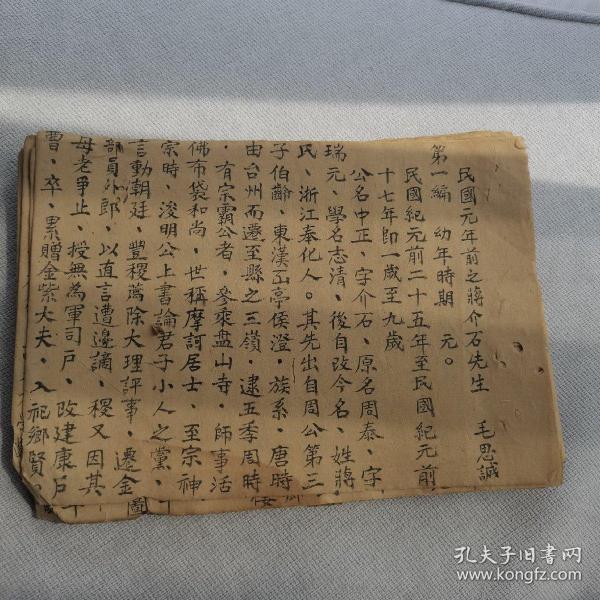 民國元年前之蔣介石先生　毛思誠
第一編　幼年時期　元。
民國紀元前二十五年至民國紀元前
十七年即一歲至九歲
公名中正、字介石、原名周泰、字
瑞元、學名志清、後自改今名、姓蔣
民、浙江奉化人。其先出自周公第三
子伯齡、東漢㐀亭侯澄、族系、唐時
由台州而遷至縣之三嶺　逮五季周時
、有宗霸公者、參乘盘山寺、師事活
佛布袋和尚、世稱摩訶居士、至宗神
宗時、浚明公上書論君子小人之黨、
言動朝廷、豐稷薦除大理評事、遷金
部員外郎、以直言遭邊謫、稷又因其
母老爭止、授無為軍司戶、改建康戶
曹、卒、累贈金紫大夫、入祀鄉賢。
孔夫子旧书网
www.kongfz.com